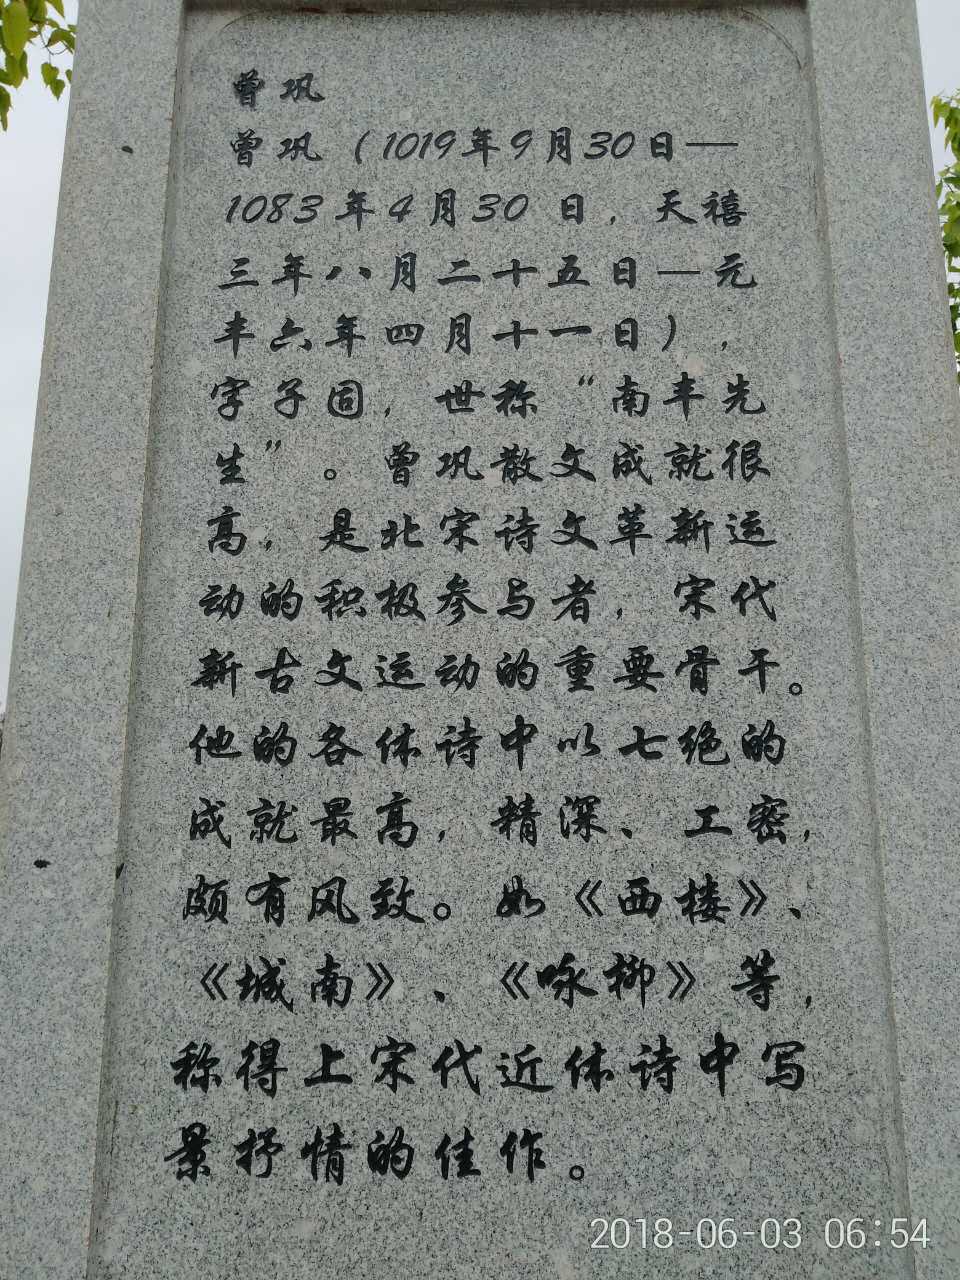 曾巩
曾巩（1019年9月30日—
1083年4月30日，天禧
三年八月二十五日—元
丰六年四月十一日），
字子固，世称“南丰先
生”。曾巩散文成就很
高，是北宋诗文革新运
动的积极参与者，宋代
新古文运动的重要骨干。
他的各体诗中以七绝的
成就最高，精深、工密，
颇有风致。如《西楼》、
《城南》、《咏柳》等，
称得上宋代近体诗中写
景抒情的佳作。
2018-06-03 06:54